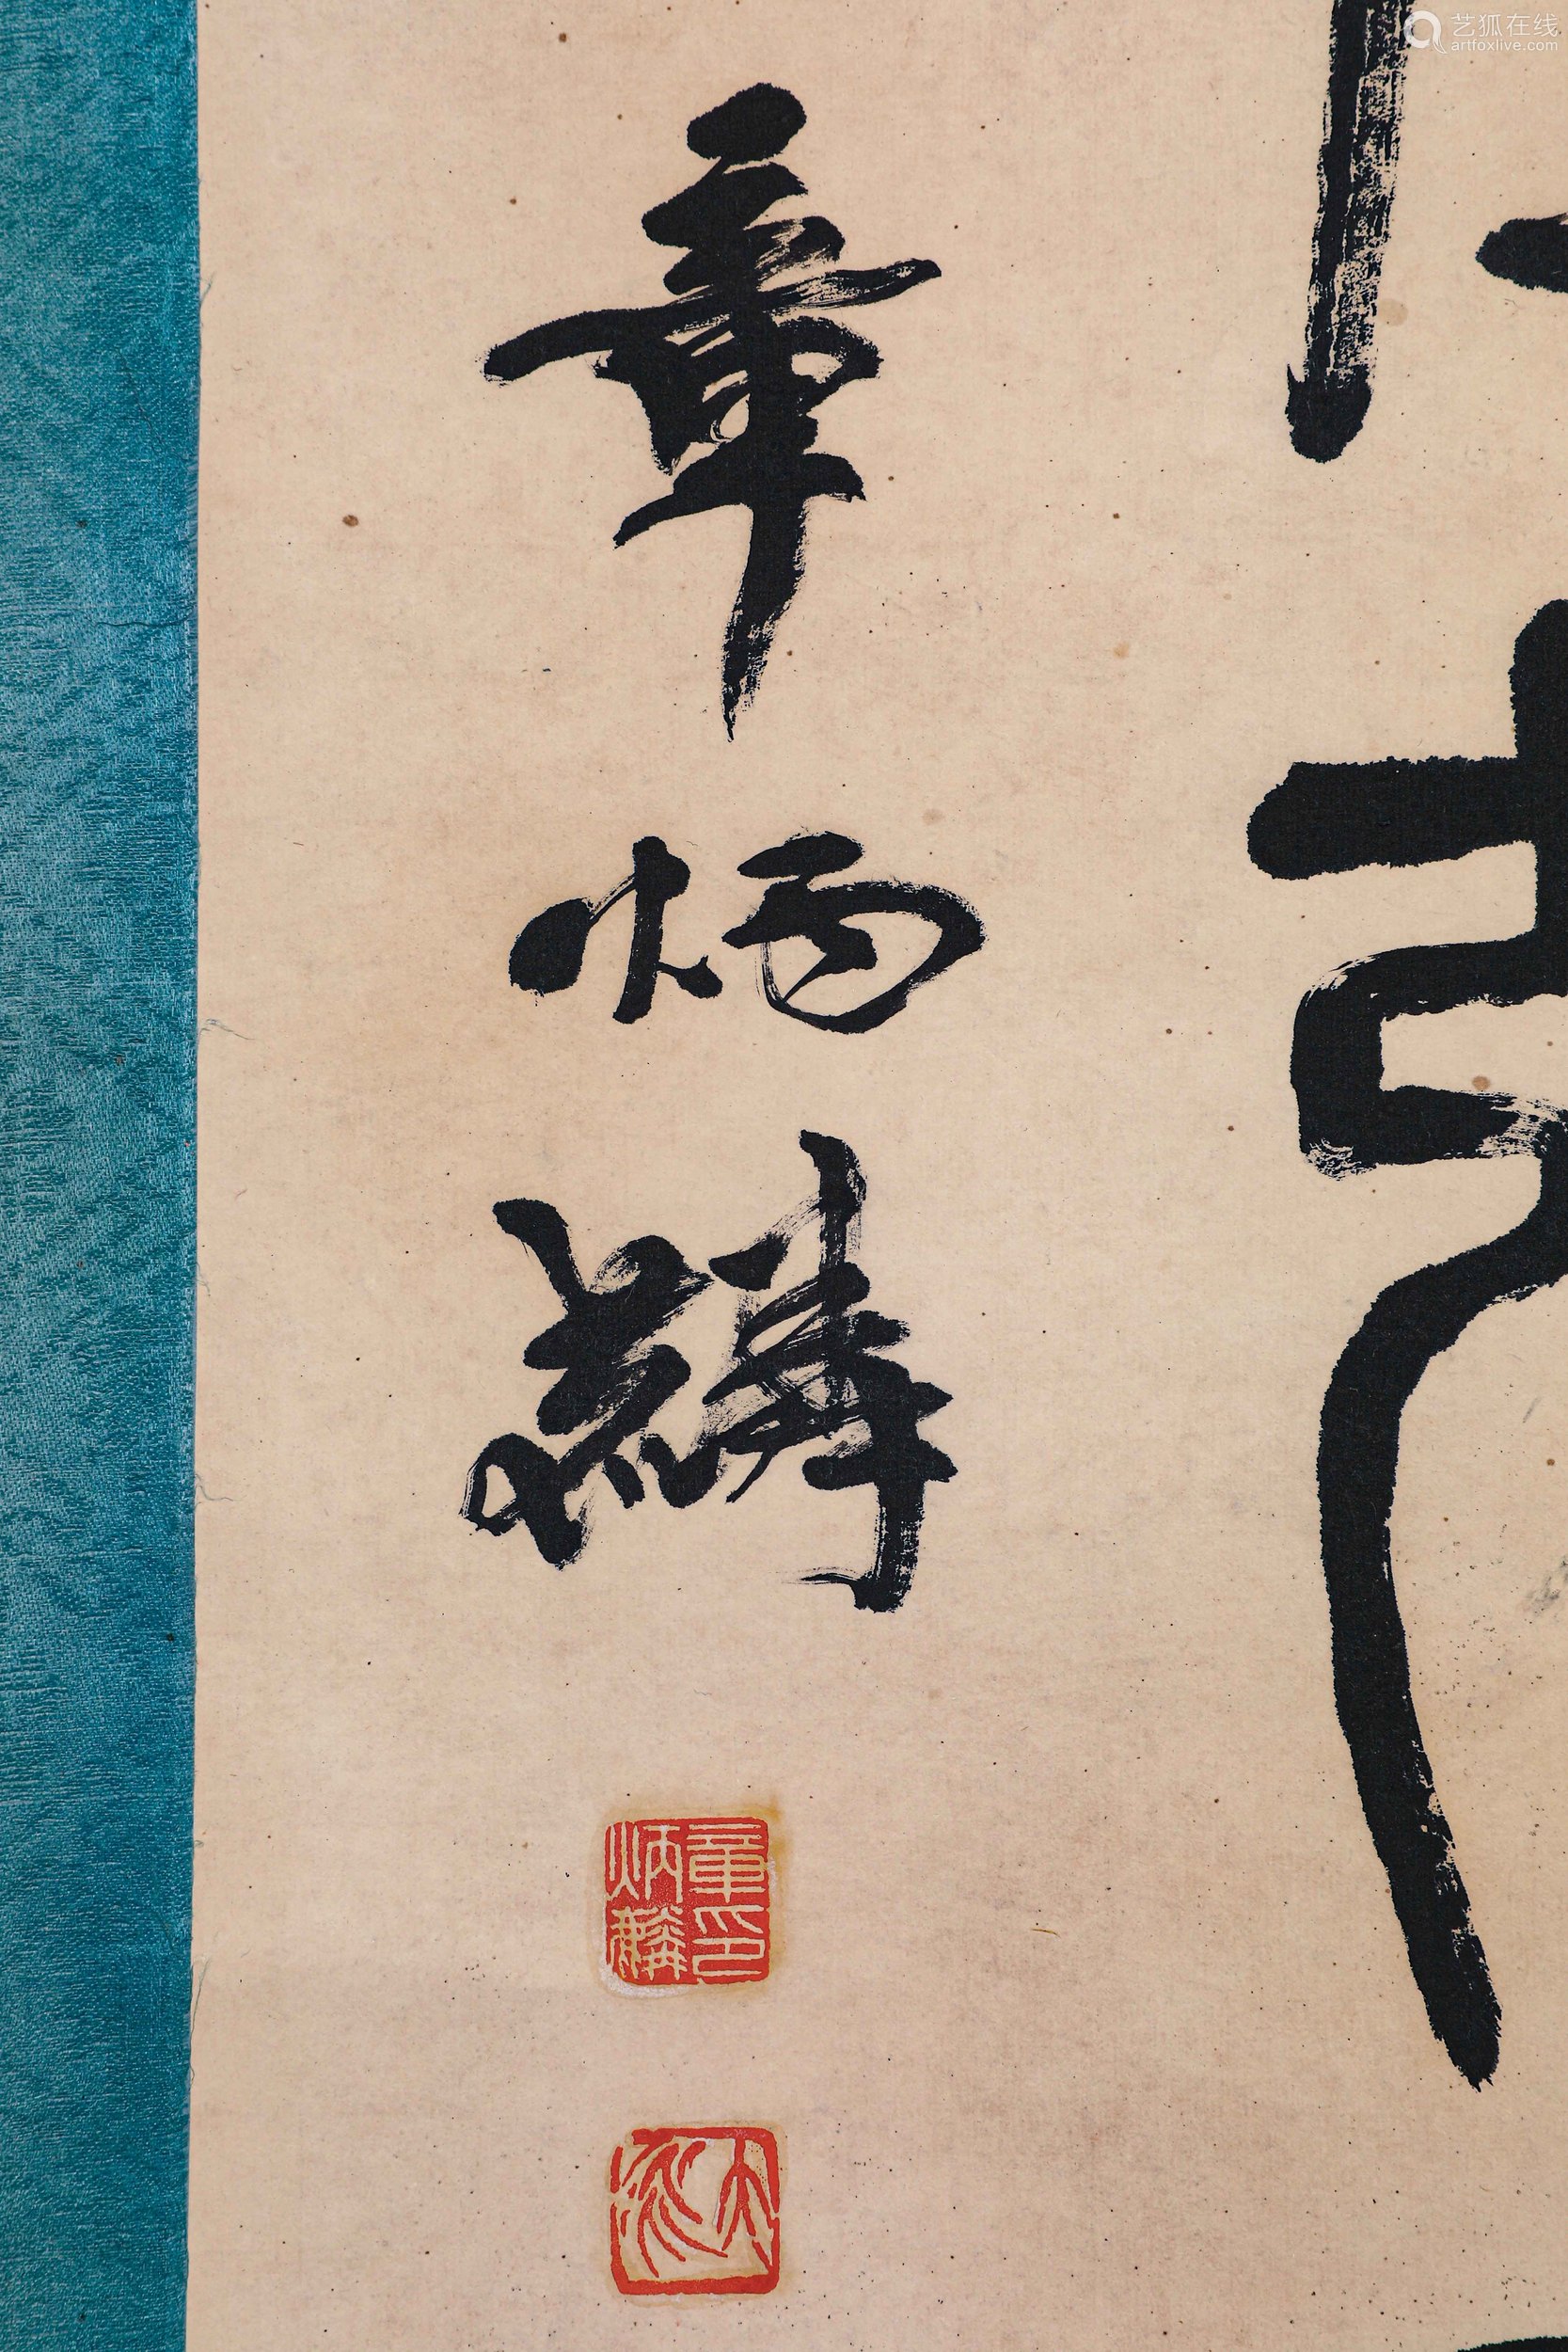 章炳麟
章印炳麟
太炎
艺狐在线
artfoxlive.com